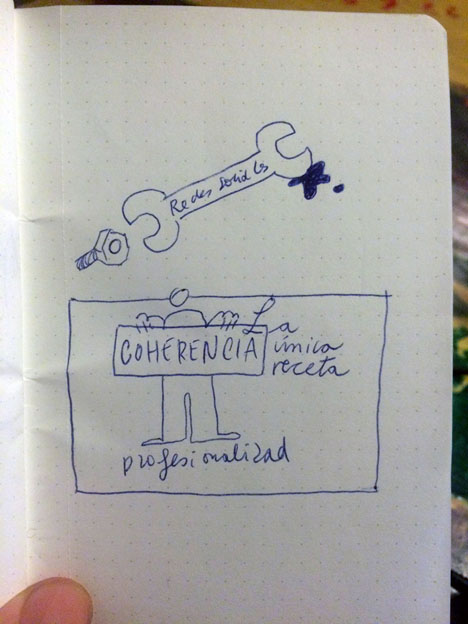 Redes
La
COHERENCIA única
receta
profesionalizad